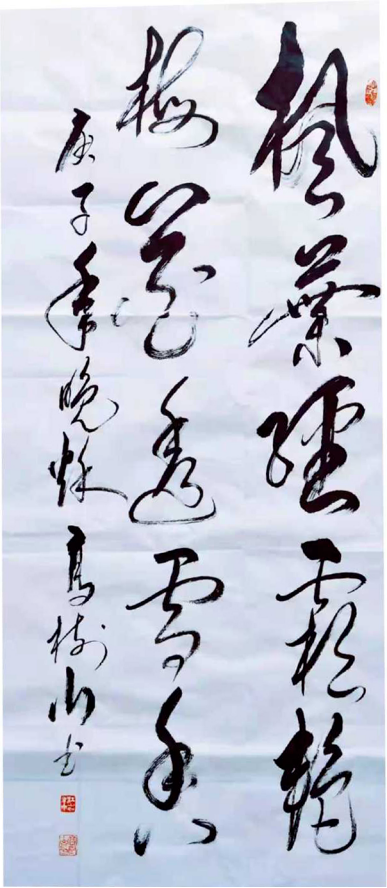 楓葉經霜艷
梅花透雪香
庚子年晚秋高樹山书